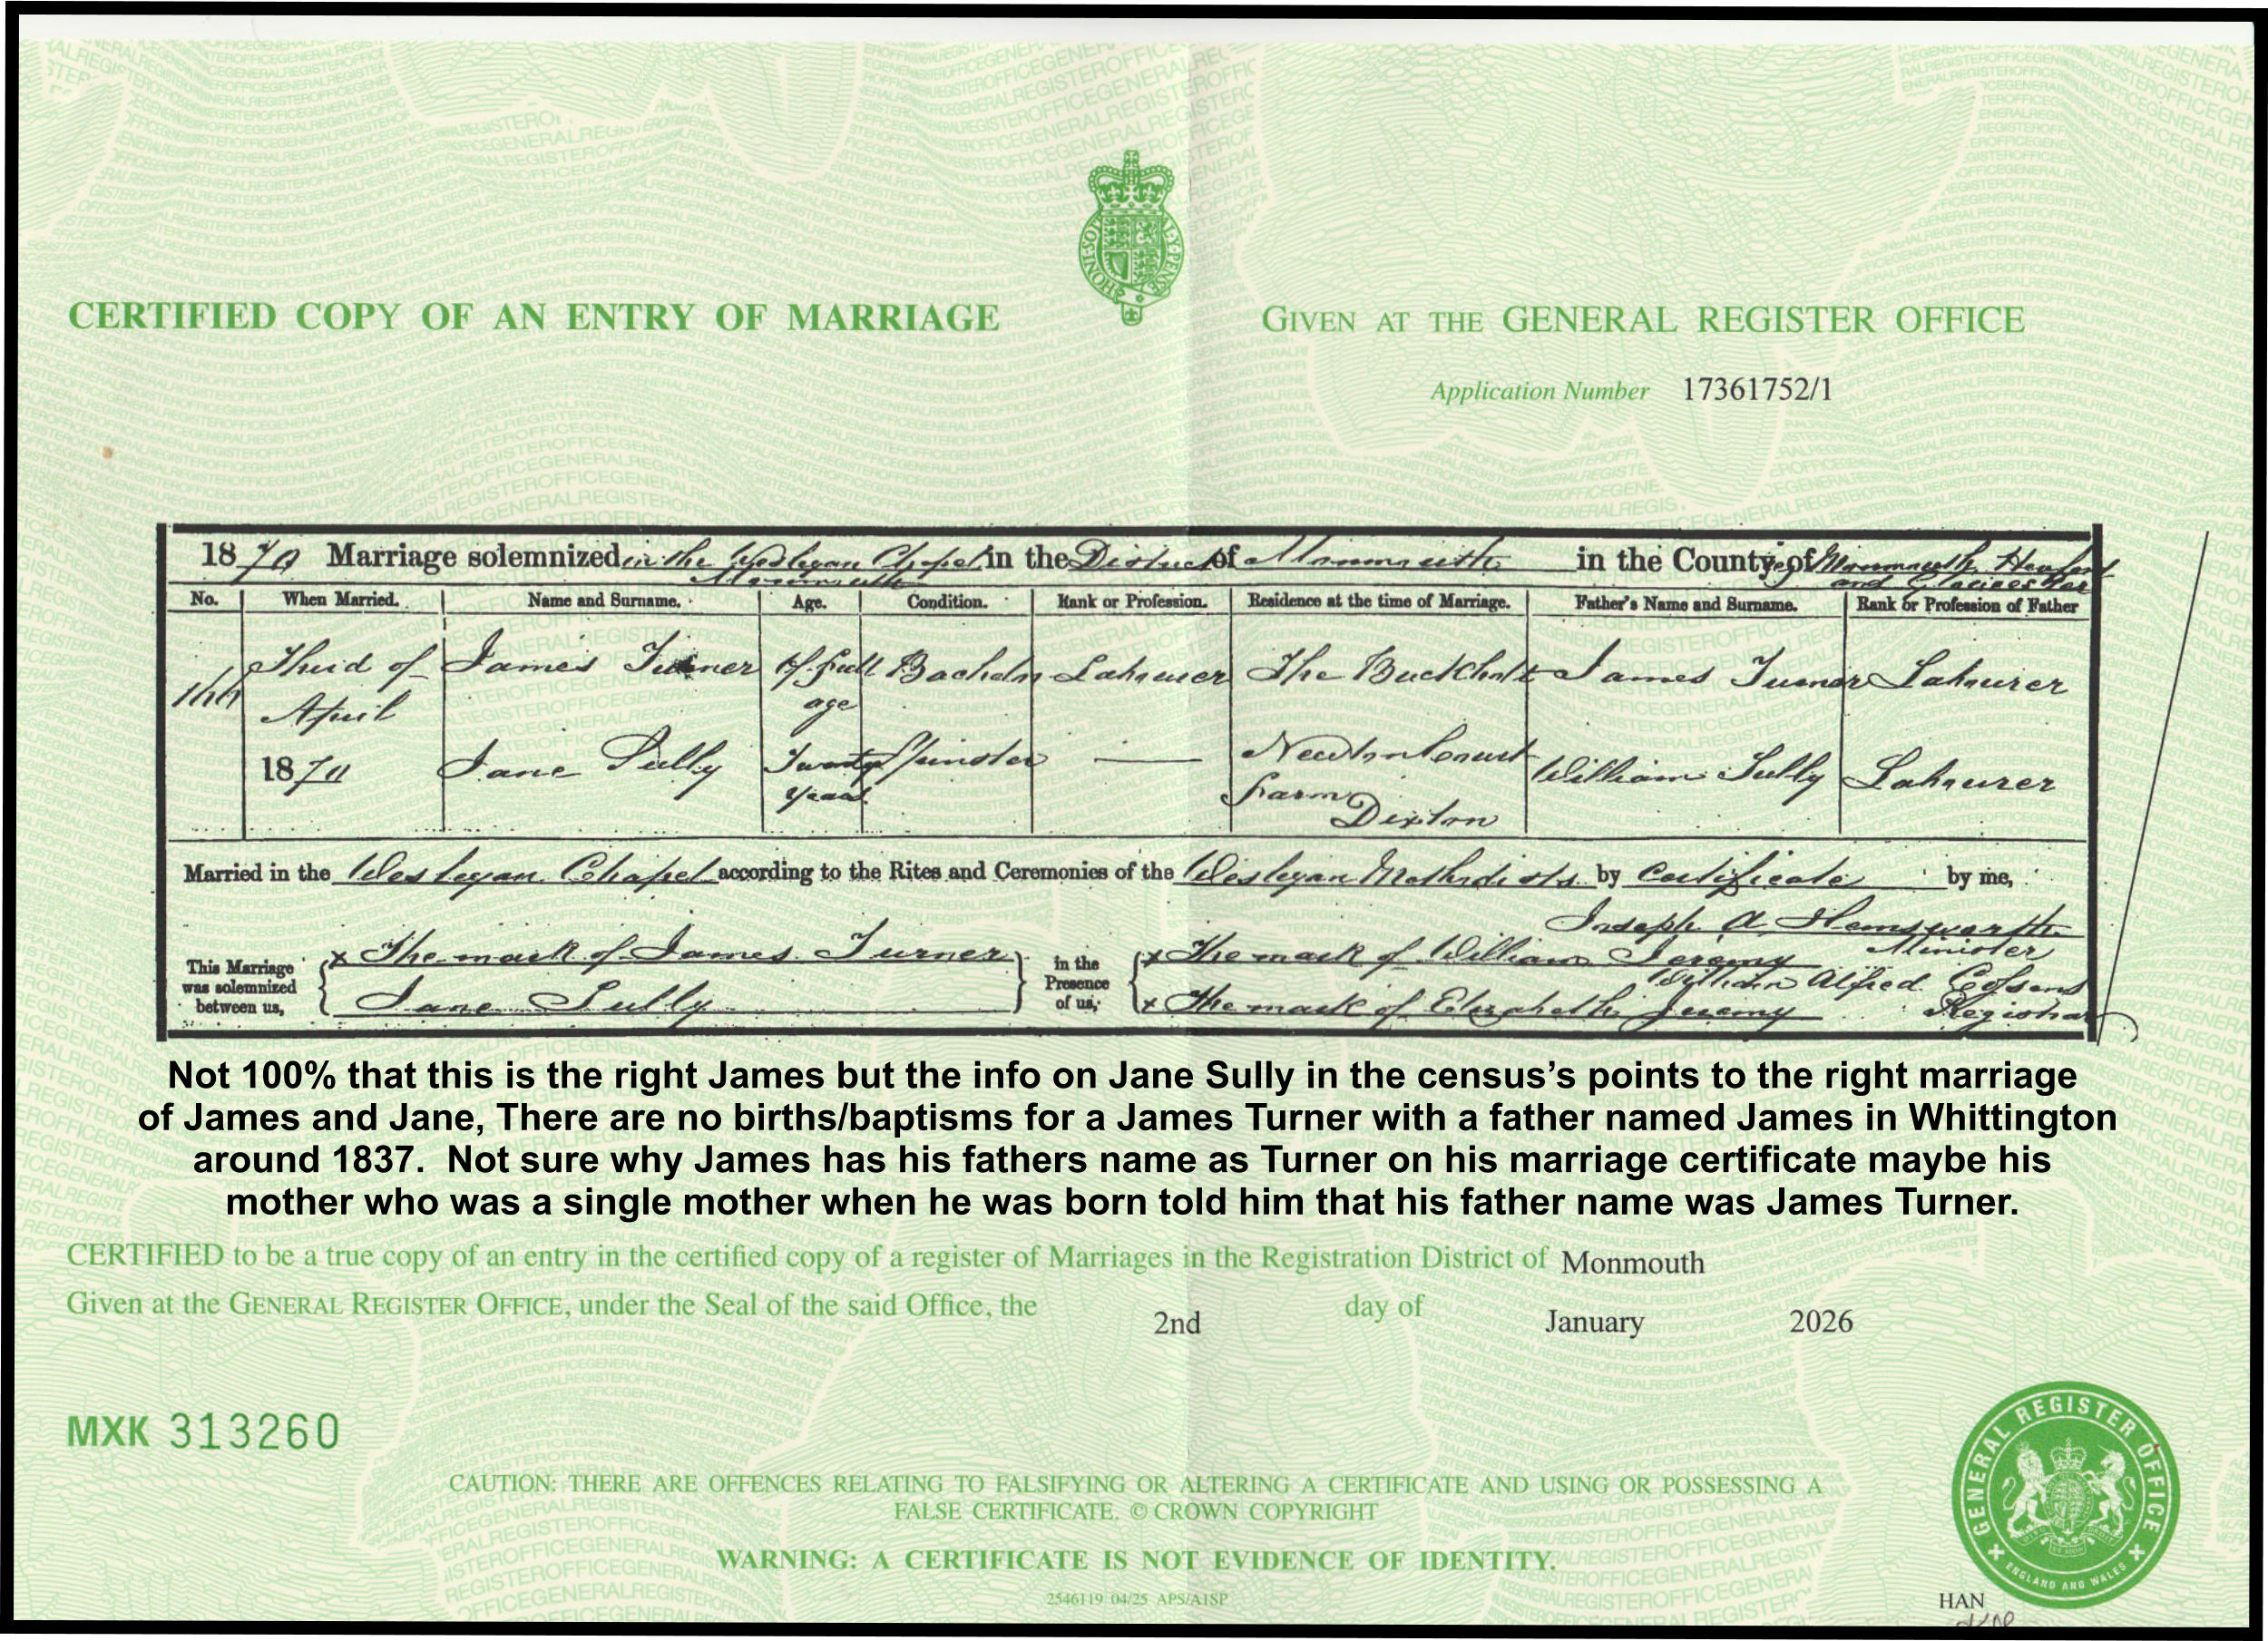 CERTIFIED COPY OF AN ENTRY OF MARRIAGE
GIVEN AT THE GENERAL REGISTER OFFICE
Application Number 17361752/1
1870 Marriage solemnized in the Wesleyan Chapel in the District of Monmouth in the County of Monmouth, Hereford
Monmouth and Gloucester
No. When Married. Name and Surname. Age. Condition. Rank or Profession. Residence at the time of Marriage. Father's Name and Surname. Rank or Profession of Father
Third of James Turner Of full Bachelor Labourer The Buckholt James Turner Labourer
April age
1870 Jane Sully Twenty Spinster — Newton Court William Sully Labourer
years Farm
Dixton
Married in the Wesleyan Chapel according to the Rites and Ceremonies of the Wesleyan Methodists by Certificate by me,
Joseph A. Hemsworth
Minister
This Marriage was solemnized between us, x The mark of James Turner in the Presence of us, x The mark of William Jeremy
Jane Sully x The mark of Elizabeth Jeremy
William Alfred
Registrar
Not 100% that this is the right James but the info on Jane Sully in the census’s points to the right marriage
of James and Jane, There are no births/baptisms for a James Turner with a father named James in Whittington
around 1837. Not sure why James has his fathers name as Turner on his marriage certificate maybe his
mother who was a single mother when he was born told him that his father name was James Turner.
CERTIFIED to be a true copy of an entry in the certified copy of a register of Marriages in the Registration District of Monmouth
Given at the GENERAL REGISTER OFFICE, under the Seal of the said Office, the 2nd day of January 2026
MXK 313260
CAUTION: THERE ARE OFFENCES RELATING TO FALSIFYING OR ALTERING A CERTIFICATE AND USING OR POSSESSING A
FALSE CERTIFICATE. © CROWN COPYRIGHT
WARNING: A CERTIFICATE IS NOT EVIDENCE OF IDENTITY.
2546119 04/25 APS/AISP
GENERAL REGISTER OFFICE
ENGLAND AND WALES
HAN